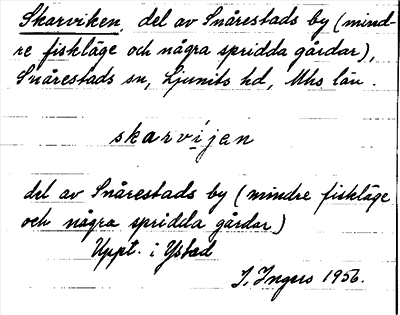 Skarviken, del av Snårestads by (mind-
re fiskläge och några spridda gårdar),
Snårestads sn, Ljunits hd, Mhs län.
skarvijan
del av Snårestads by (mindre fiskläge
och några spridda gårdar)
Uppt. i Ystad
I. Ingers 1956.